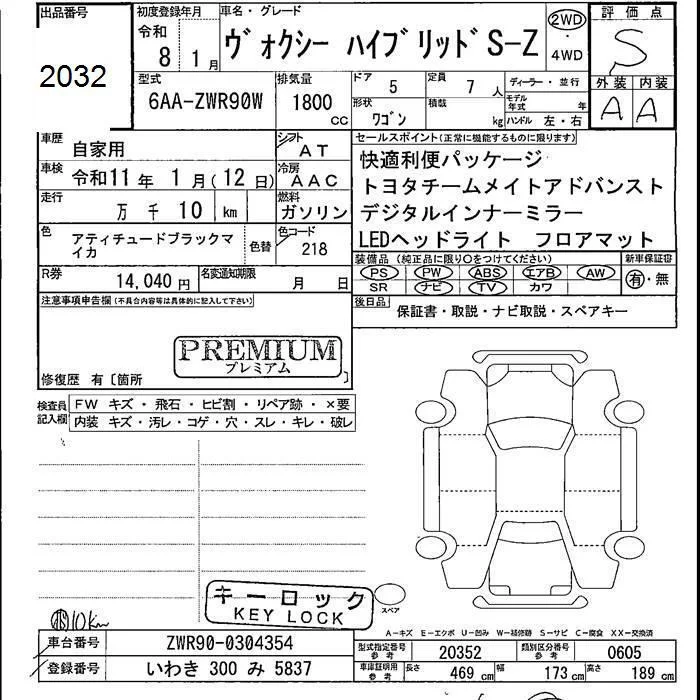 出品番号
2032
初度登録年月
令和
8 1月
車名・グレード
ヴォクシー ハイブリッド S-Z
2WD
・
4WD
評価点
S
外装 内装
A A
型式
6AA-ZWR90W
排気量
1800
cc
ドア
5
形状
ワゴン
定員
7 人
積載
kg
ディーラー・並行
モデル年式 年
ハンドル 左・右
車歴
自家用
シフト
AT
車検
令和11年 1月(12日)
冷房
AAC
走行
万 千 10 km
燃料
ガソリン
色
アティチュードブラックマイカ
色替
色コード
218
R券
14,040円
名変通知期限
月 日
セールスポイント(正常に機能するものに限ります)
快適利便パッケージ
トヨタチームメイトアドバンスト
デジタルインナーミラー
LEDヘッドライト フロアマット
装備品 (純正品に限り○をつけてください)
PS PW ABS エアB AW
SR ナビ TV カワ
新車保証書
有・無
後日品
保証書・取説・ナビ取説・スペアキー
注意事項申告欄(不具合内容等は具体的に記入して下さい)
PREMIUM
プレミアム
修復歴 有〔箇所 〕
検査員記入欄
FW キズ・飛石・ヒビ割・リペア跡・×要
内装 キズ・汚レ・コゲ・穴・スレ・キレ・破レ
キーロック
KEY LOCK
スペア
10km
A-キズ E-エクボ U-凹み W-補修跡 S-サビ C-腐食 XX-交換済
車台番号
ZWR90-0304354
登録番号
いわき 300 み 5837
型式指定番号
参考
20352
類別区分番号
参考
0605
車庫証明用
参考
長さ
469 cm
幅
173 cm
高さ
189 cm